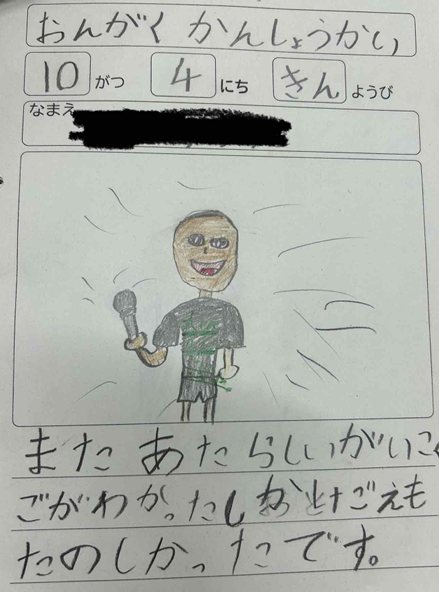 おんがくかんしょうかい
10 がつ 4 にち きん ようび
なまえ
またあたらしいがいこく
ごがわかったしかけごえも
たのしかったです。